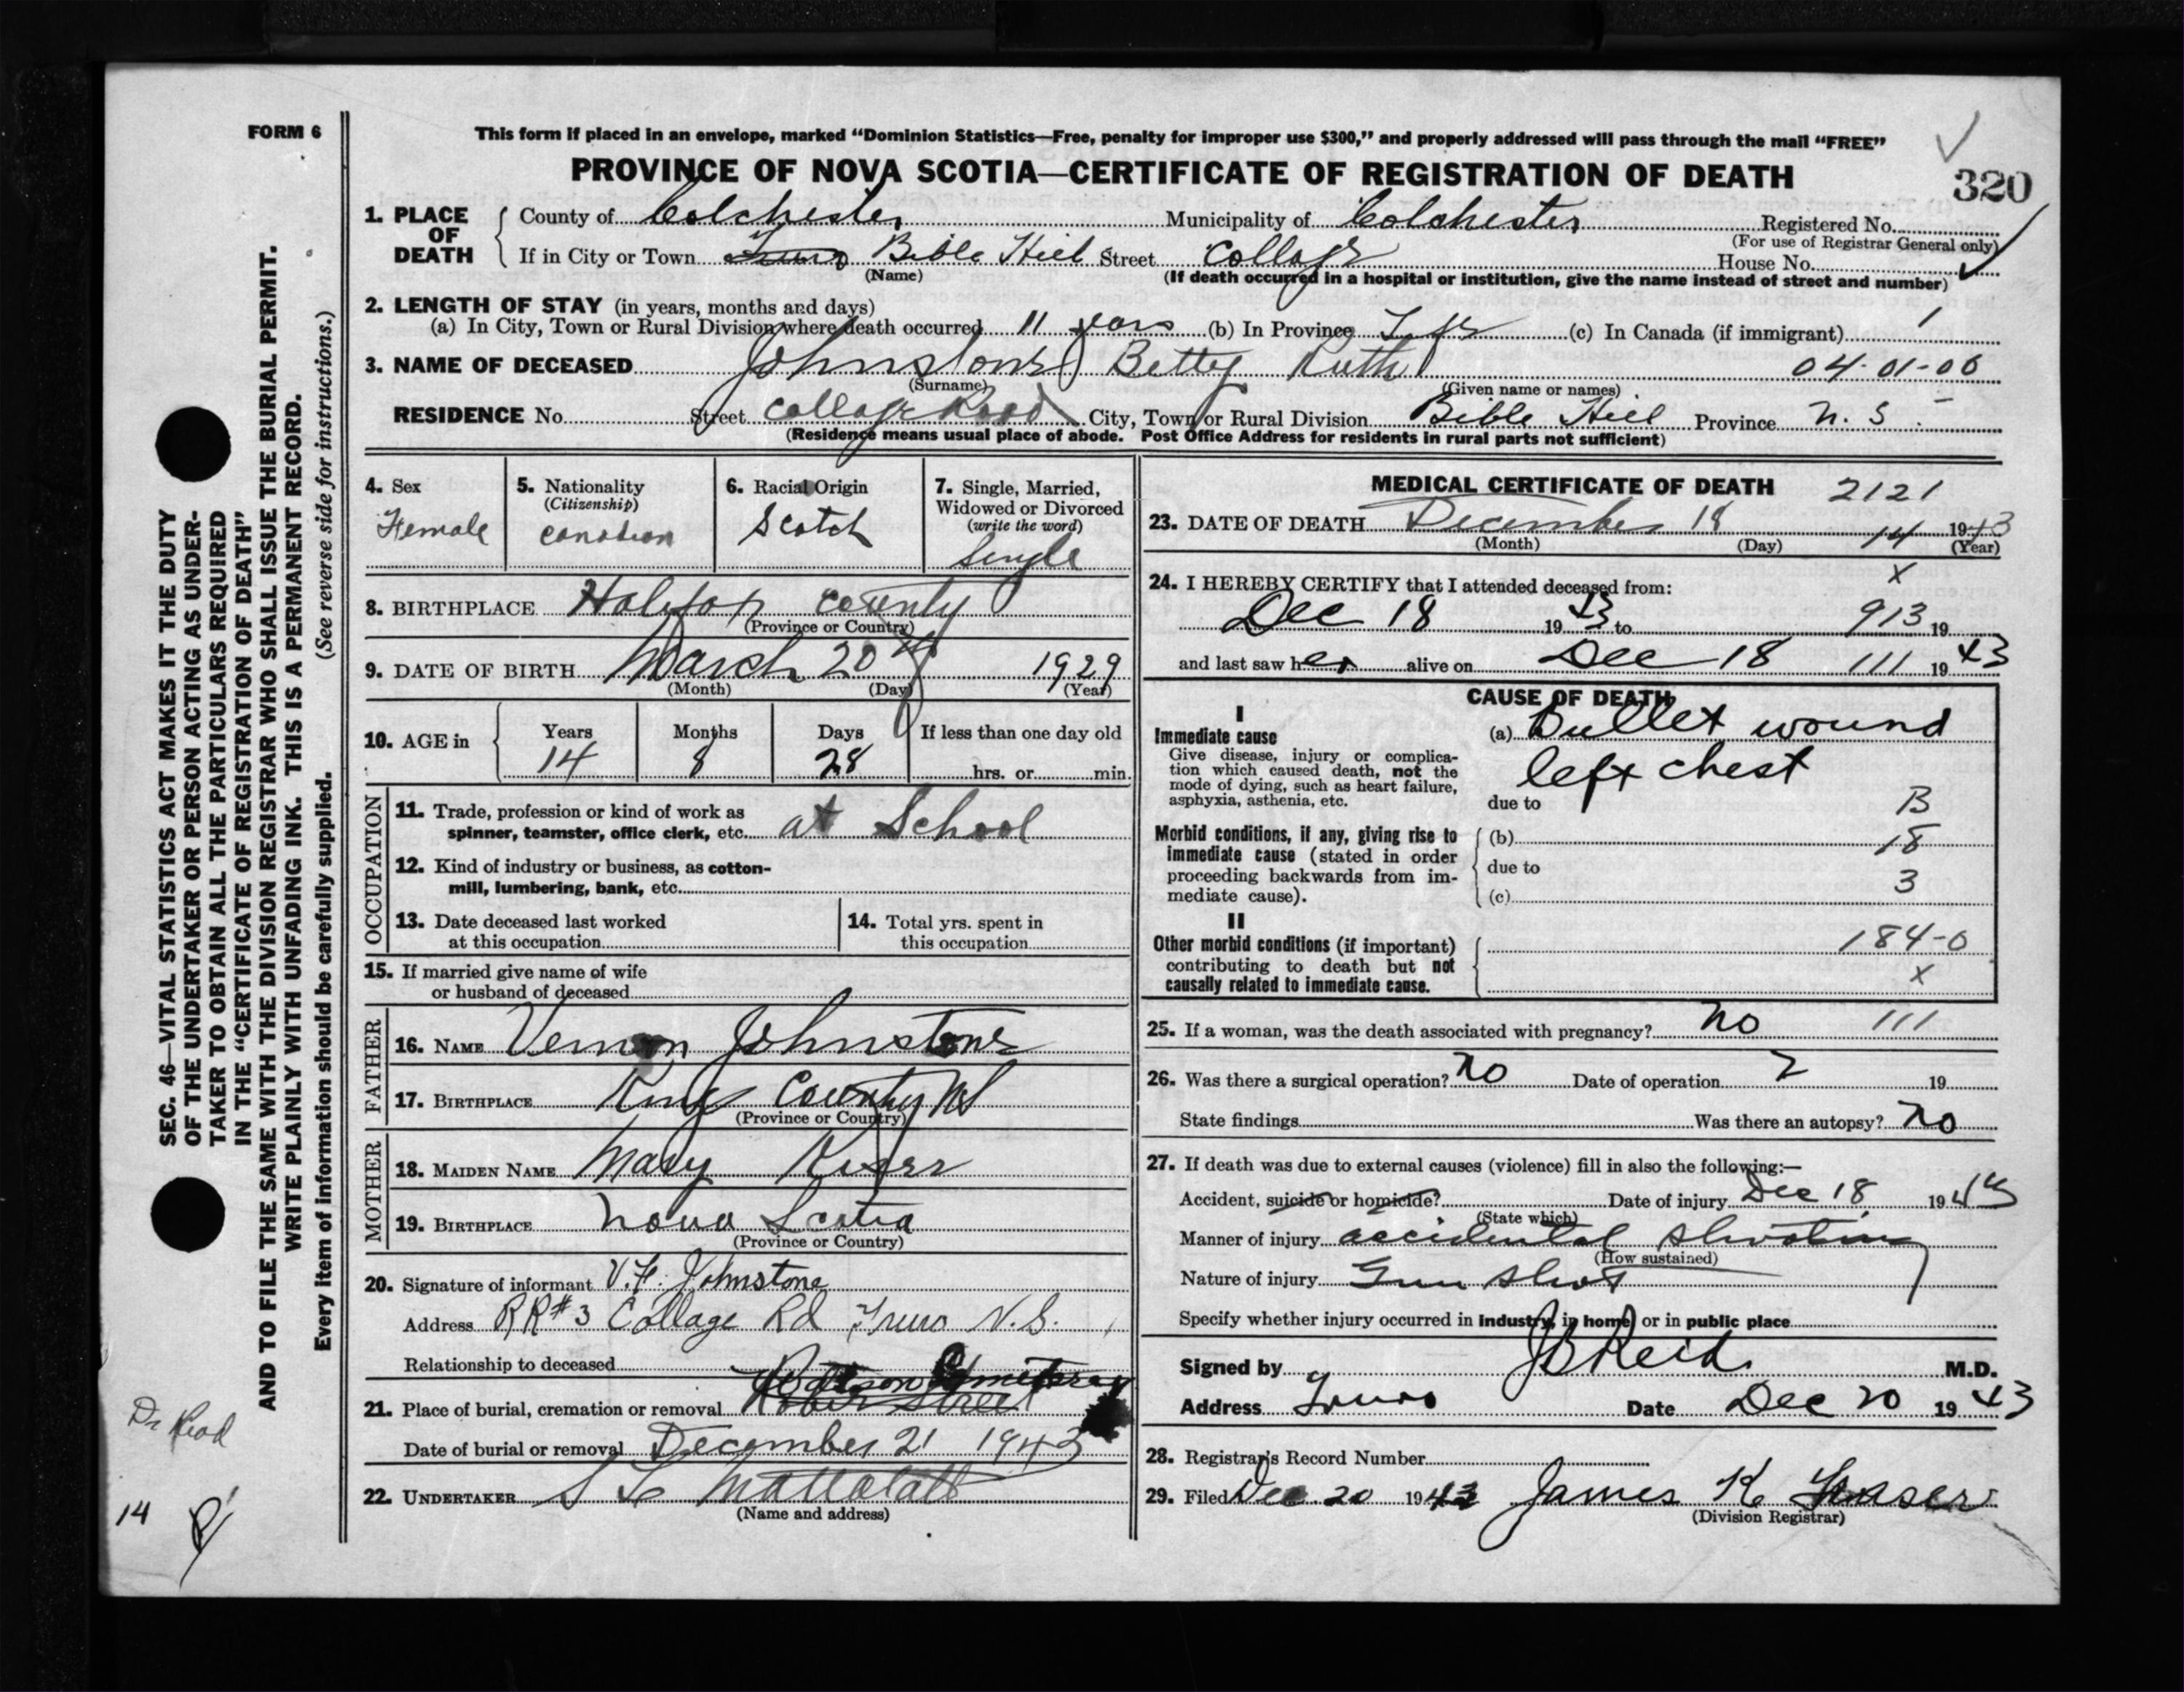 FORM 6
This form if placed in an envelope, marked “Dominion Statistics—Free, penalty for improper use $300,” and properly addressed will pass through the mail “FREE”
PROVINCE OF NOVA SCOTIA—CERTIFICATE OF REGISTRATION OF DEATH
320
1. PLACE OF DEATH
County of Colchester Municipality of Colchester Registered No.
(For use of Registrar General only)
If in City or Town Truro Bible Hill Street College House No.
(Name) (If death occurred in a hospital or institution, give the name instead of street and number)
2. LENGTH OF STAY (in years, months and days)
(a) In City, Town or Rural Division where death occurred 11 years (b) In Province Life (c) In Canada (if immigrant)
3. NAME OF DECEASED Johnstone Betty Ruth 04-01-06
(Surname) (Given name or names)
RESIDENCE No. Street College Road City, Town or Rural Division Bible Hill Province N.S.
(Residence means usual place of abode. Post Office Address for residents in rural parts not sufficient)
4. Sex
Female
5. Nationality
(Citizenship)
Canadian
6. Racial Origin
Scotch
7. Single, Married,
Widowed or Divorced
(write the word)
Single
8. BIRTHPLACE Halifax County
(Province or Country)
9. DATE OF BIRTH March 20th 1929
(Month) (Day) (Year)
10. AGE in
Years Months Days If less than one day old
14 8 28 hrs. or min.
OCCUPATION
11. Trade, profession or kind of work as
spinner, teamster, office clerk, etc. at School
12. Kind of industry or business, as cotton-
mill, lumbering, bank, etc.
13. Date deceased last worked
at this occupation
14. Total yrs. spent in
this occupation
15. If married give name of wife
or husband of deceased
FATHER
16. NAME Vernon Johnstone
17. BIRTHPLACE Kings County NS
(Province or Country)
MOTHER
18. MAIDEN NAME Mary
19. BIRTHPLACE Nova Scotia
(Province or Country)
20. Signature of informant V.F. Johnstone
Address RR#3 College Rd Truro N.S.
Relationship to deceased
Cemetery
21. Place of burial, cremation or removal Robie Street
Date of burial or removal December 21 1943
22. UNDERTAKER S
(Name and address)
MEDICAL CERTIFICATE OF DEATH 2121
23. DATE OF DEATH December 18 14 1943
(Month) (Day) (Year)
24. I HEREBY CERTIFY that I attended deceased from: x
Dec 18 1943 to 913 19
and last saw her alive on Dec 18 111 1943
CAUSE OF DEATH
I
Immediate cause
Give disease, injury or complica-
tion which caused death, not the
mode of dying, such as heart failure,
asphyxia, asthenia, etc.
(a) Bullet wound
left chest
due to B
Morbid conditions, if any, giving rise to
immediate cause (stated in order
proceeding backwards from im-
mediate cause).
(b) 18
due to
3
(c)
II
Other morbid conditions (if important)
contributing to death but not
causally related to immediate cause.
184-0
x
25. If a woman, was the death associated with pregnancy? no 111
26. Was there a surgical operation? no Date of operation 2 19
State findings Was there an autopsy? no
27. If death was due to external causes (violence) fill in also the following:—
Accident, suicide or homicide? Date of injury Dec 18 1943
(State which)
Manner of injury accidental shooting
(How sustained)
Nature of injury Gun shot
Specify whether injury occurred in industry, in home, or in public place
Signed by JB Reid M.D.
Address Truro Date Dec 20 1943
28. Registrar's Record Number
29. Filed Dec 20 1943 James K Fraser
(Division Registrar)
SEC. 46—VITAL STATISTICS ACT MAKES IT THE DUTY
OF THE UNDERTAKER OR PERSON ACTING AS UNDER-
TAKER TO OBTAIN ALL THE PARTICULARS REQUIRED
IN THE “CERTIFICATE OF REGISTRATION OF DEATH”
AND TO FILE THE SAME WITH THE DIVISION REGISTRAR WHO SHALL ISSUE THE BURIAL PERMIT.
WRITE PLAINLY WITH UNFADING INK. THIS IS A PERMANENT RECORD.
Every item of information should be carefully supplied. (See reverse side for instructions.)
Dr Read
14